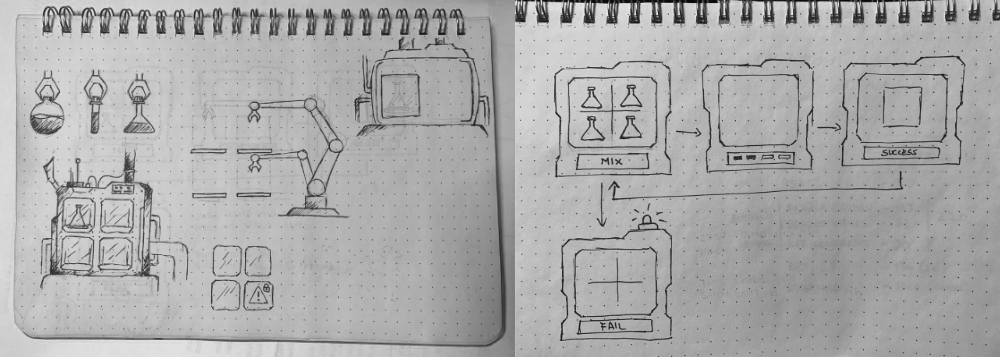 MIX
SUCCESS
FAIL